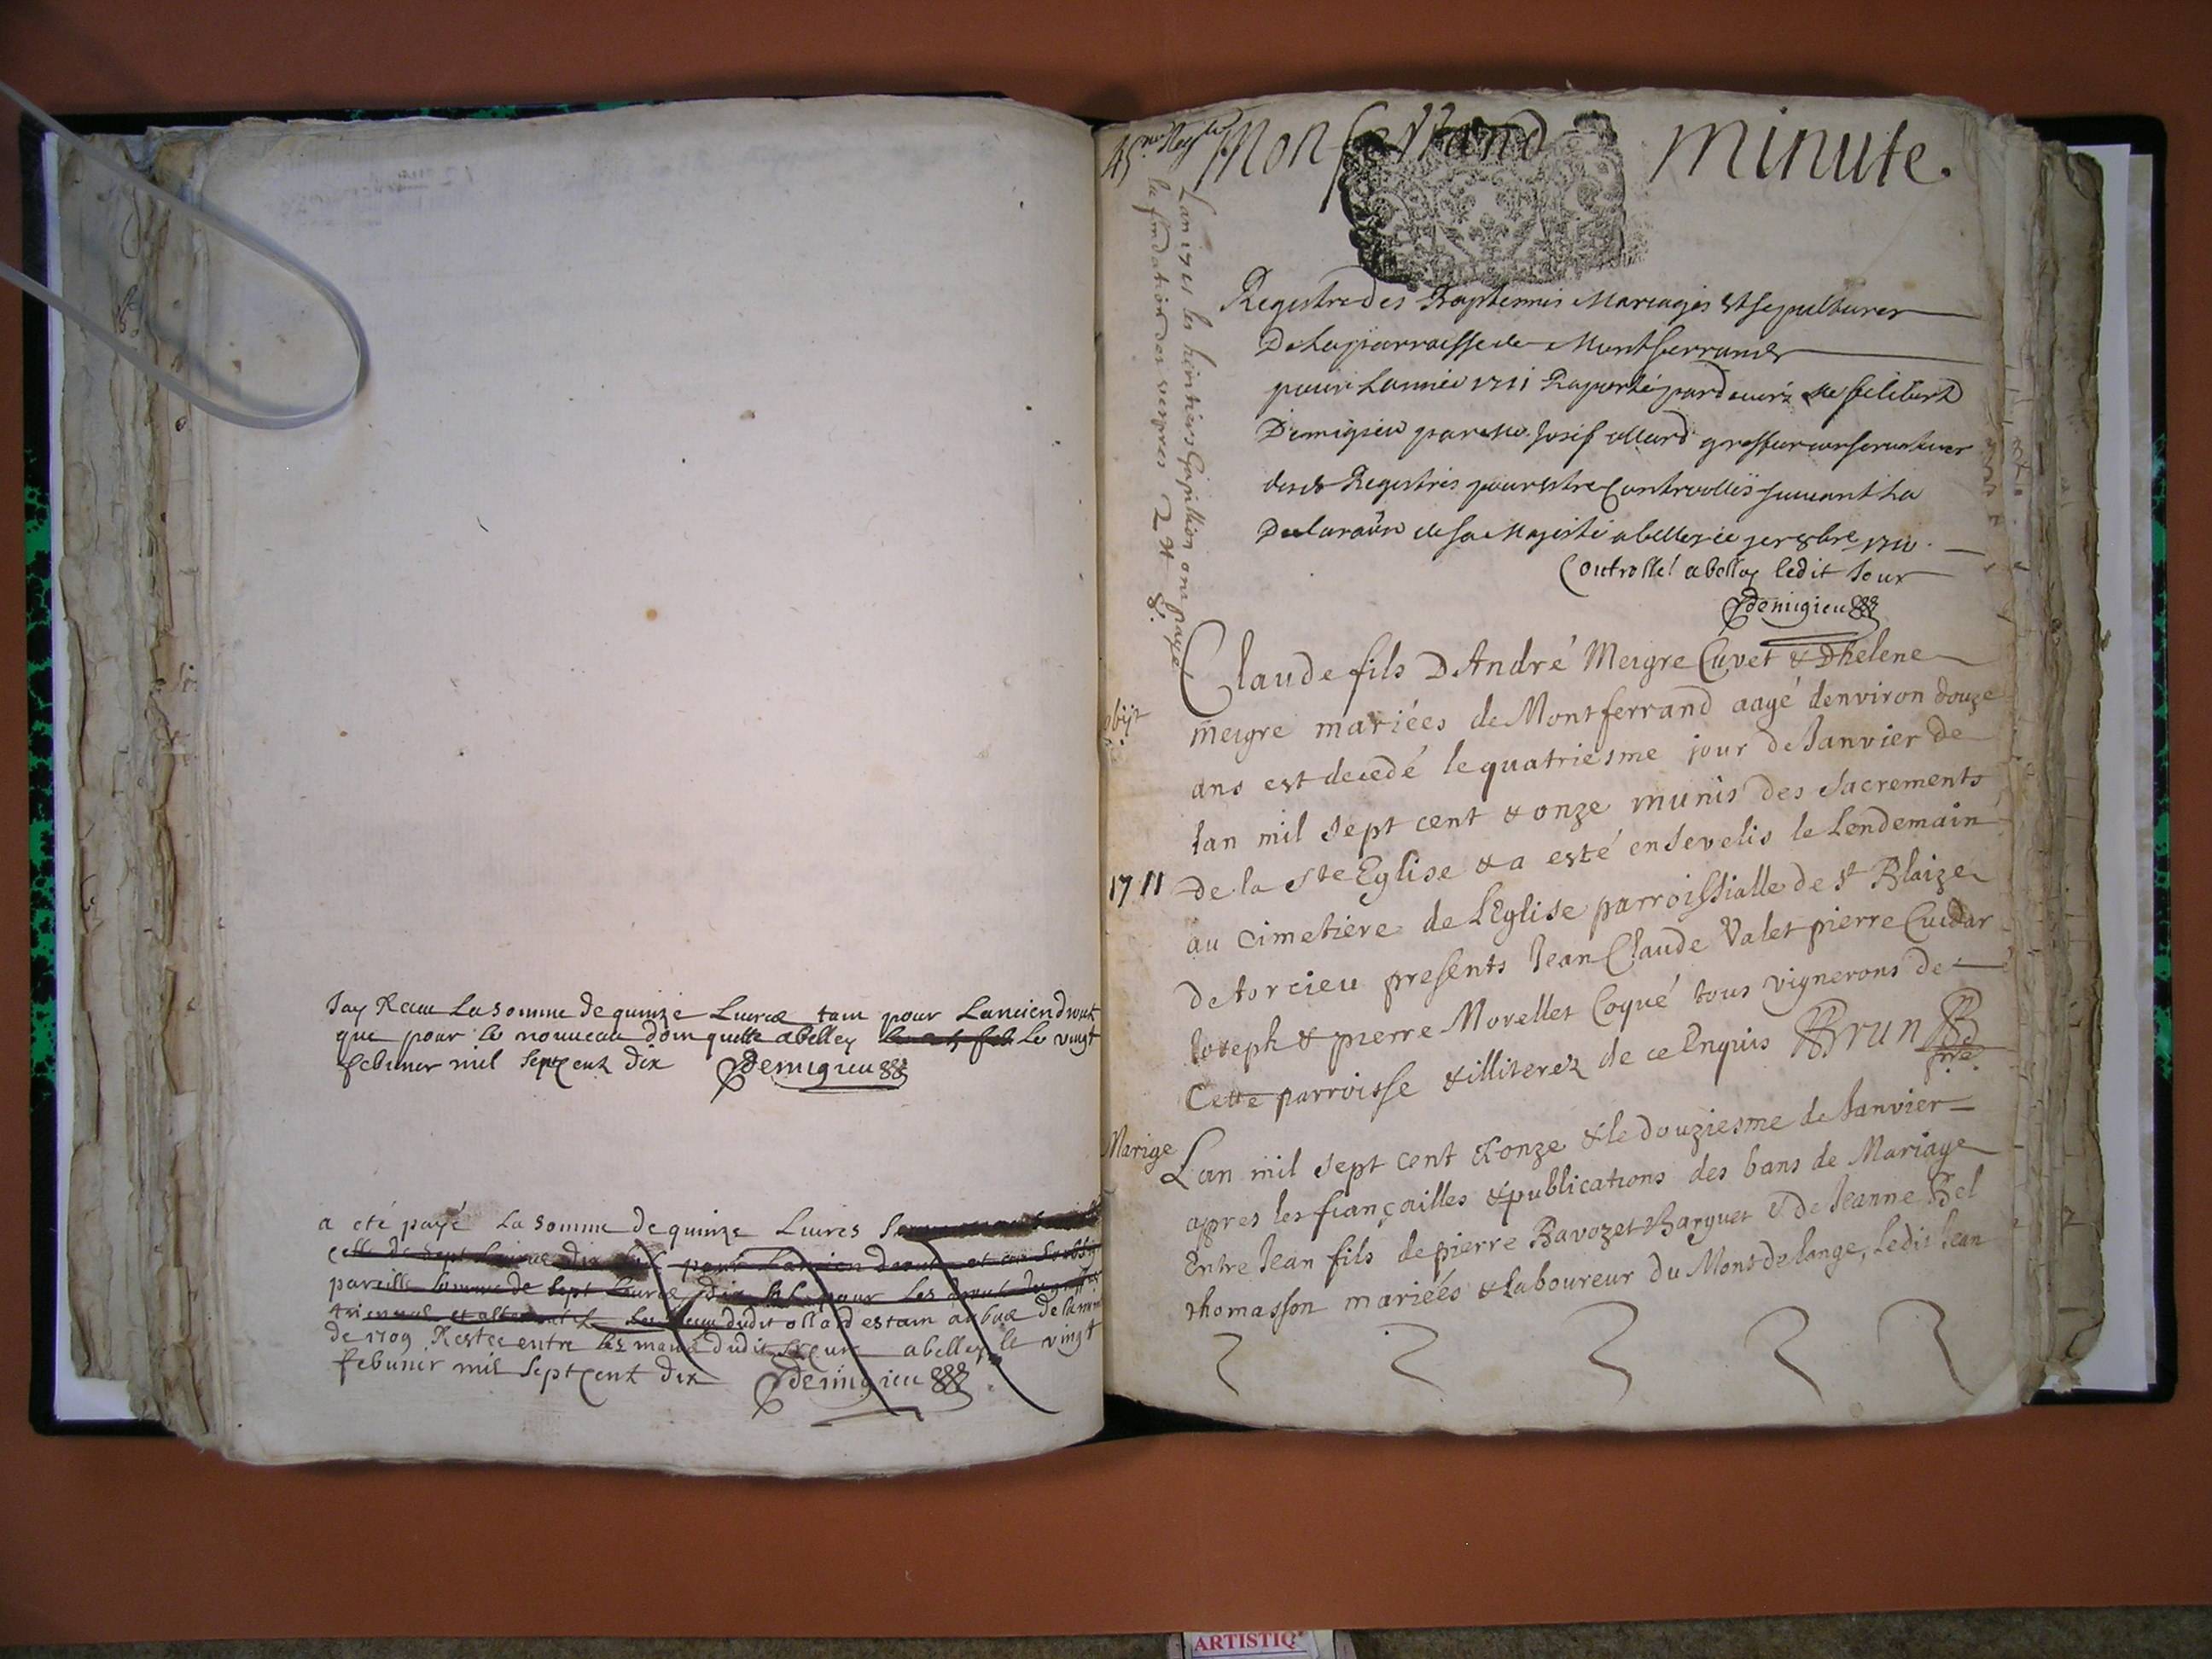 Jay Receu La somme de quinze Livres tam pour Lancien droit
que pour le nouveau dom quitte a belley le vingt
febvrier mil sept cent dix Demigieu
a eté payé La somme de quinze Livres
celle de sept Livres dix pour Lancien droit et
pareille somme de sept Livres dix pour les droit
triennal et dudit ollard estam au bas de
de 1709 Restée entre les mains dudit sieur a belley le vingt
febvrier mil sept cent dix Demigieu
Montferrand minute.
Lan 1701 les heritiers Gapillion om payé
la fondation des vespres 2 # 8.
Registre des Baptemes Mariages et sepultures
De La parroisse de Montferrand
pour Lannée 1711 Raporté pardevers Me filibert
Demigieu par Me Josef ollard greffier conservateur
desd Registres pour estre Controollés suivant La
Declaraōn de sa Majesté a belley ce jer xbre 1710.
Controllé a belley ledit Jour
Demigieu
Claude fils D André Meigre Cuvet & Dhelene
obijt
meigre mariées de Montferrand aagé denviron douze
ans est decedé le quatriesme jour de Janvier de
lan mil sept cent & onze munis des sacrements
1711
de la ste Eglise & a esté ensevelis le Lendemain
au cimetiere de LEglise parroissialle de st Blaize
de torcieu presents Jean Claude Valet pierre Cuidar
Joseph & pierre Morellet Coqué tous vignerons de
Cette parroisse & illiterez de ce Enquis Brun
Marige
Lan mil sept cent & onze & le douziesme de Janvier
apres les fiançailles & publications des bans de Mariage
Entre Jean fils de pierre Ravozet Barquet & de Jeanne Bel
thomasson mariées & laboureur du Mont de lange, Ledit Jean
ARTISTIQ